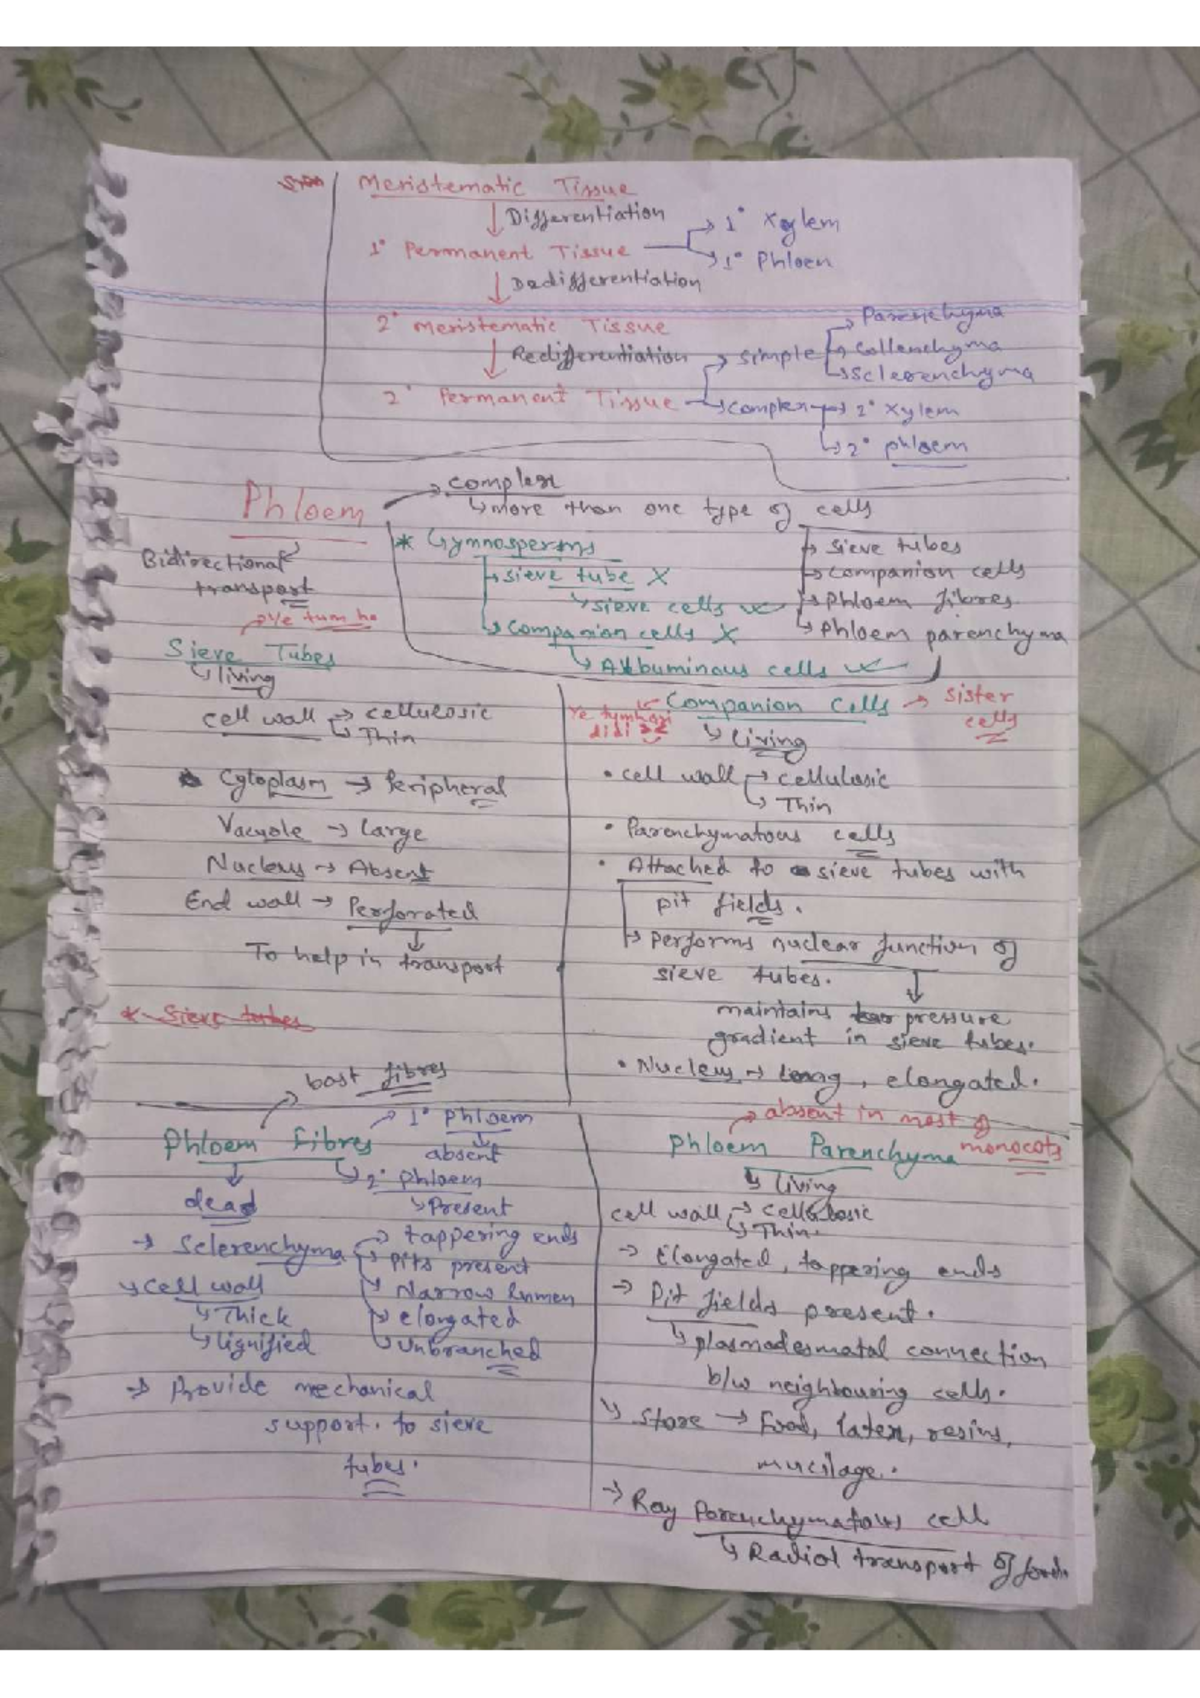 Meristematic Tissue
Differentiation
1° Permanent Tissue
1° Xylem
1° Phloem
Dedifferentiation
2° Meristematic Tissue
Redifferentiation
simple
Parenchyma
Collenchyma
Sclerenchyma
2° Permanent Tissue
complex
2° Xylem
2° phloem
Phloem
complex
more than one type of cells
sieve tubes
companion cells
Phloem fibres
Phloem parenchyma
Bidirectional
transport
* Gymnosperms
sieve tube X
sieve cells
Companion cells X
Albuminous cells
ye tum ho
Sieve Tubes
living
cell wall → cellulosic
Thin
Cytoplasm → Peripheral
Vacuole → large
Nucleus → Absent
End wall → Perforated
To help in transport
* Sieve tubes
Ye tumhari
didi
Companion Cells → sister
cells
living
• cell wall → cellulosic
Thin
• Parenchymatous cells
• Attached to sieve tubes with
pit fields.
performs nuclear function of
sieve tubes.
maintains pressure
gradient in sieve tubes.
• Nucleus → long, elongated.
bast fibres
Phloem Fibres
1° phloem
absent
2° phloem
Present
dead
→ Sclerenchyma
tappering ends
pits present
Narrow lumen
elongated
Unbranched
cell wall
Thick
lignified
→ Provide mechanical
support. to sieve
tubes.
absent in most of
monocots
Phloem Parenchyma
living
cell wall → cellulosic
Thin.
→ Elongated, tappering ends
→ Pit fields present.
plasmodesmatal connection
b/w neighbouring cells.
Store → Food, latex, resins,
mucilage.
→ Ray Parenchymatous cell
Radial transport of food.